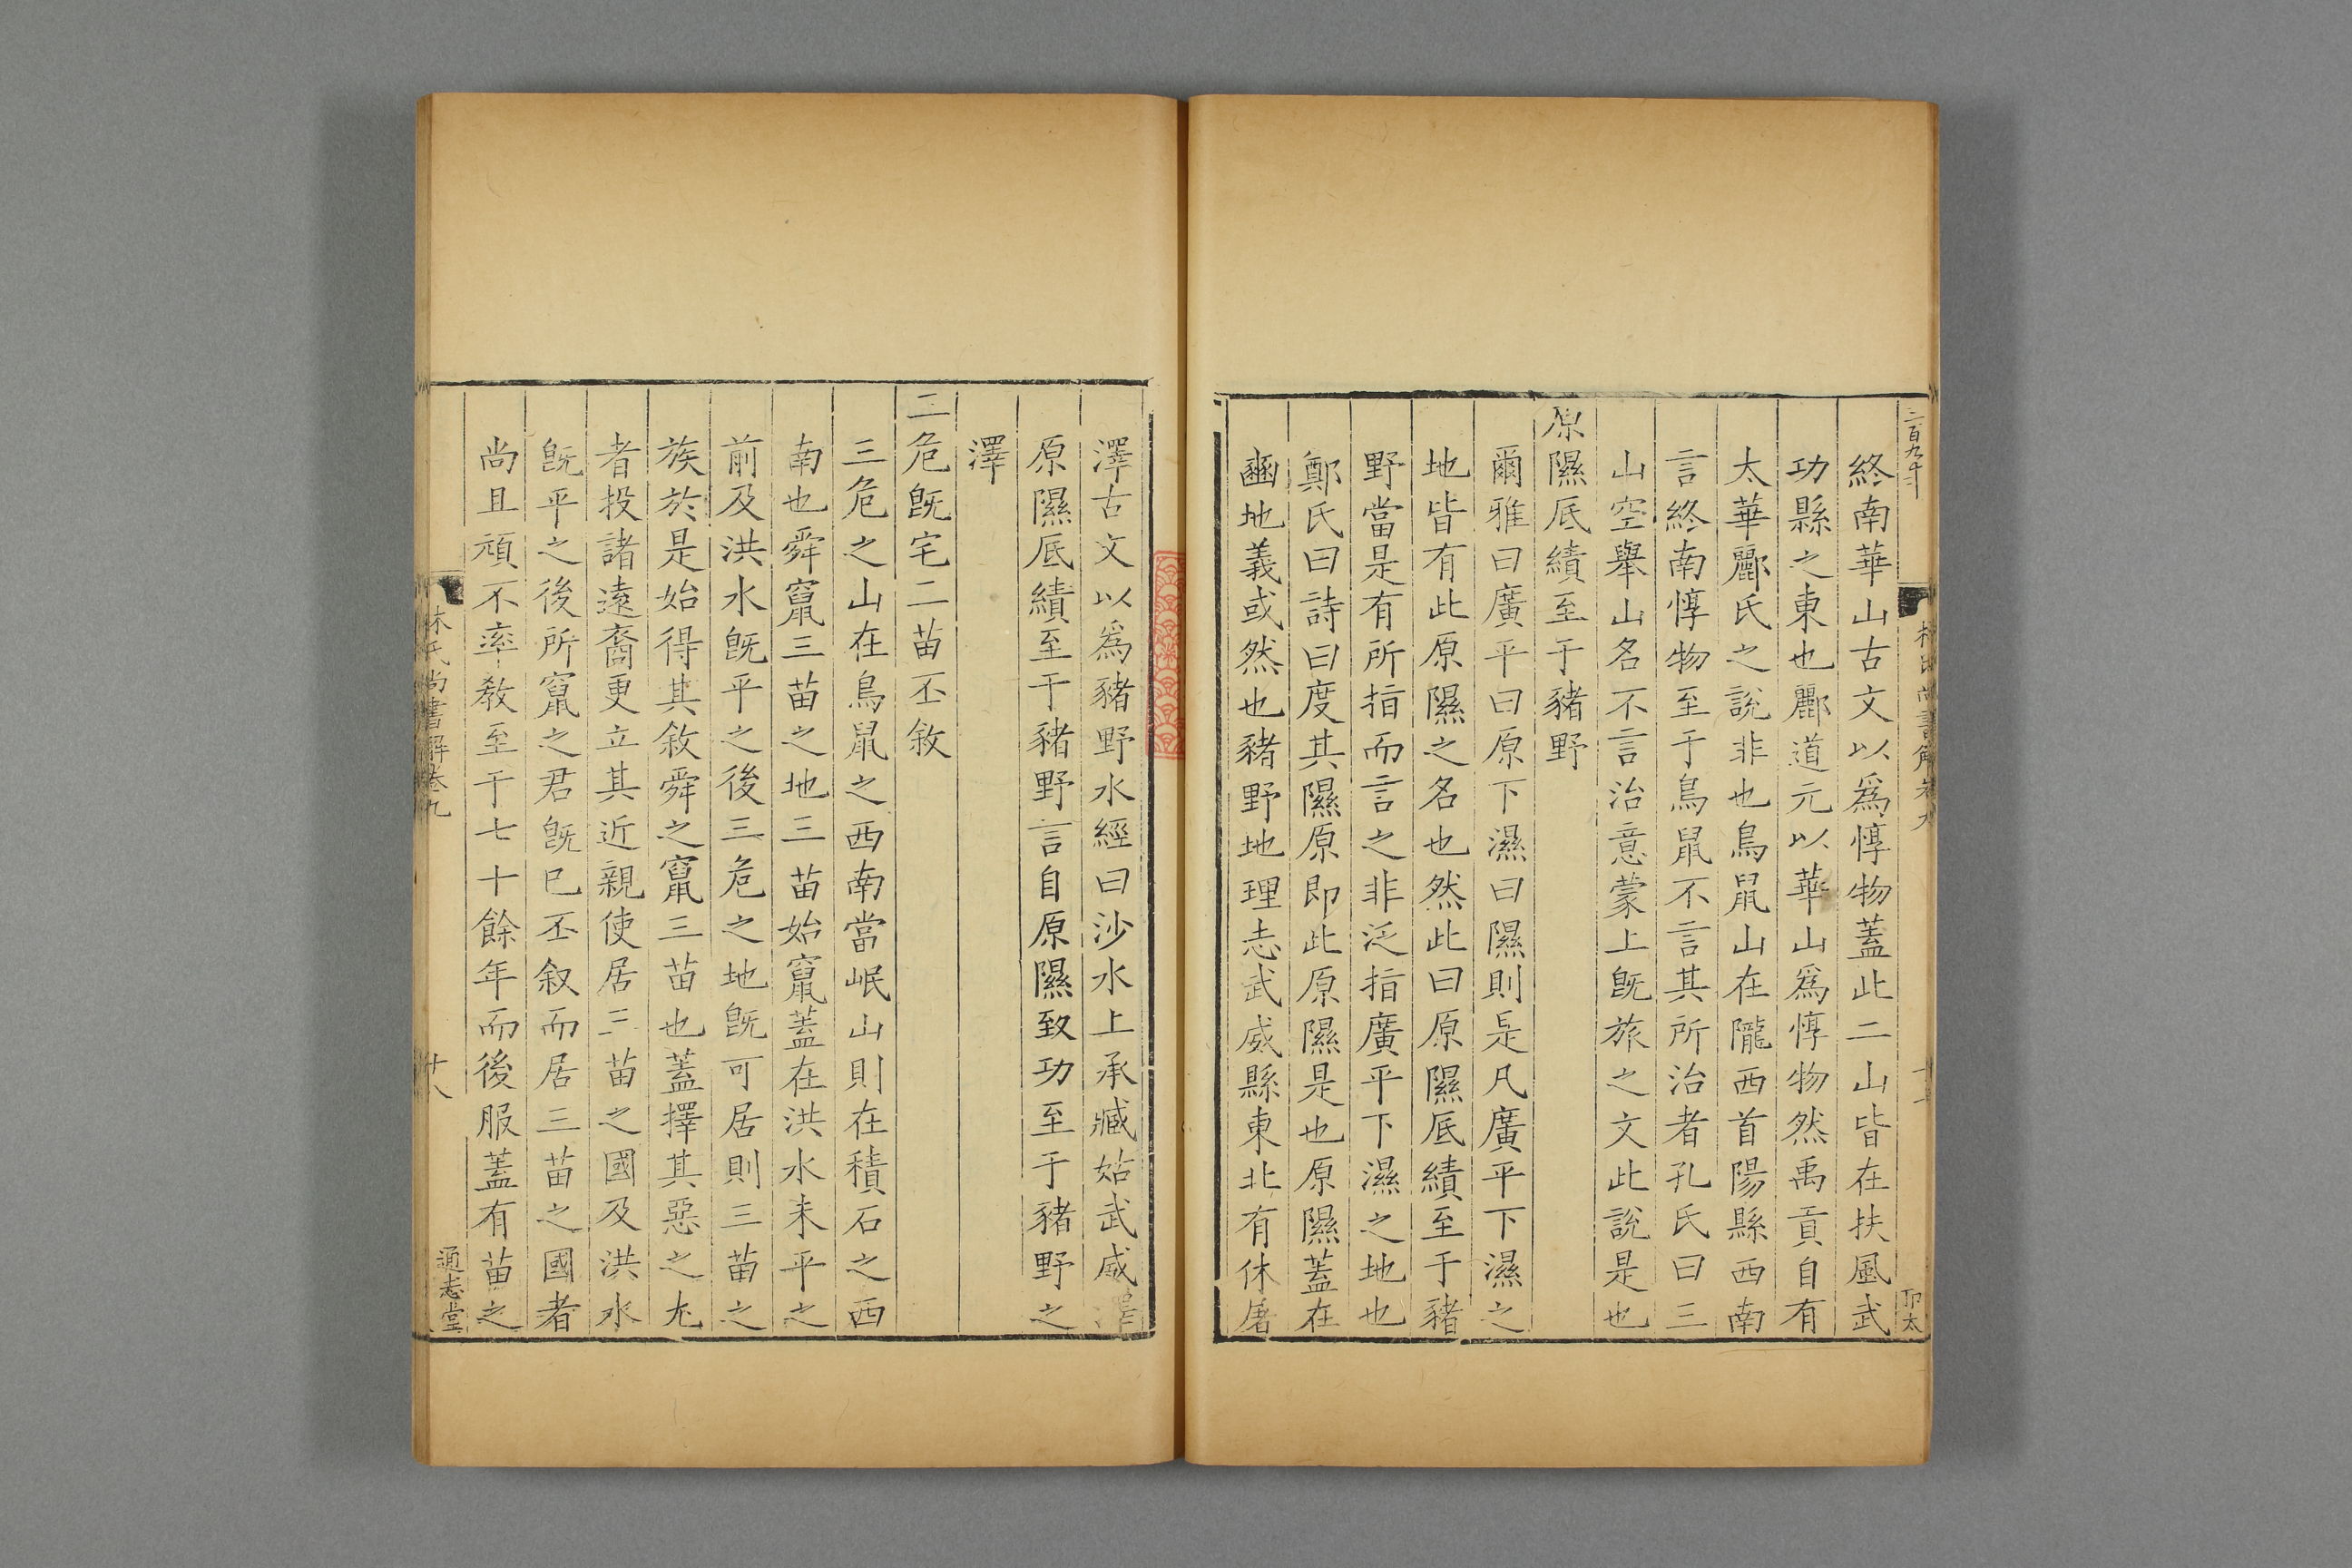 終南華山古文以爲惇物蓋此二山皆在扶風武
功縣之東也酈道元以華山爲惇物然禹貢自有
太華酈氏之說非也鳥鼠山在隴西首陽縣西南
言終南惇物至于鳥鼠不言其所治者孔氏曰三
山空舉山名不言治意蒙上旣旅之文此說是也
原隰厎績至于豬野
爾雅曰廣平曰原下濕曰隰則是凡廣平下濕之
地皆有此原隰之名也然此曰原隰厎績至于豬
野當是有所指而言之非泛指廣平下濕之地也
鄭氏曰詩曰度其隰原即此原隰是也原隰蓋在
豳地義或然也豬野地理志武威縣東北有休屠
澤古文以爲豬野水經曰沙水上承臧姑武威澤
原隰厎績至于豬野言自原隰致功至于豬野之
澤
二危旣宅二苗丕敘
三危之山在鳥鼠之西南當岷山則在積石之西
南也舜竄三苗之地三苗始竄蓋在洪水未平之
前及洪水旣平之後三危之地旣可居則三苗之
族於是始得其敘舜之竄三苗也蓋擇其惡之尤
者投諸遠裔更立其近親使居三苗之國及洪水
旣平之後所竄之君旣已丕叙而居三苗之國者
尚且頑不率敎至于七十餘年而後服蓋有苗之
林氏尚書解卷九
十八
通志堂